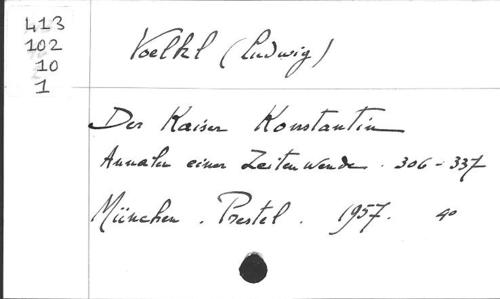 413
102
10
1
Voelkl (Ludwig)
Der Kaiser Konstantin
Annalen einer Zeitenwende . 306-337
München . Prestel . 1957. 4°